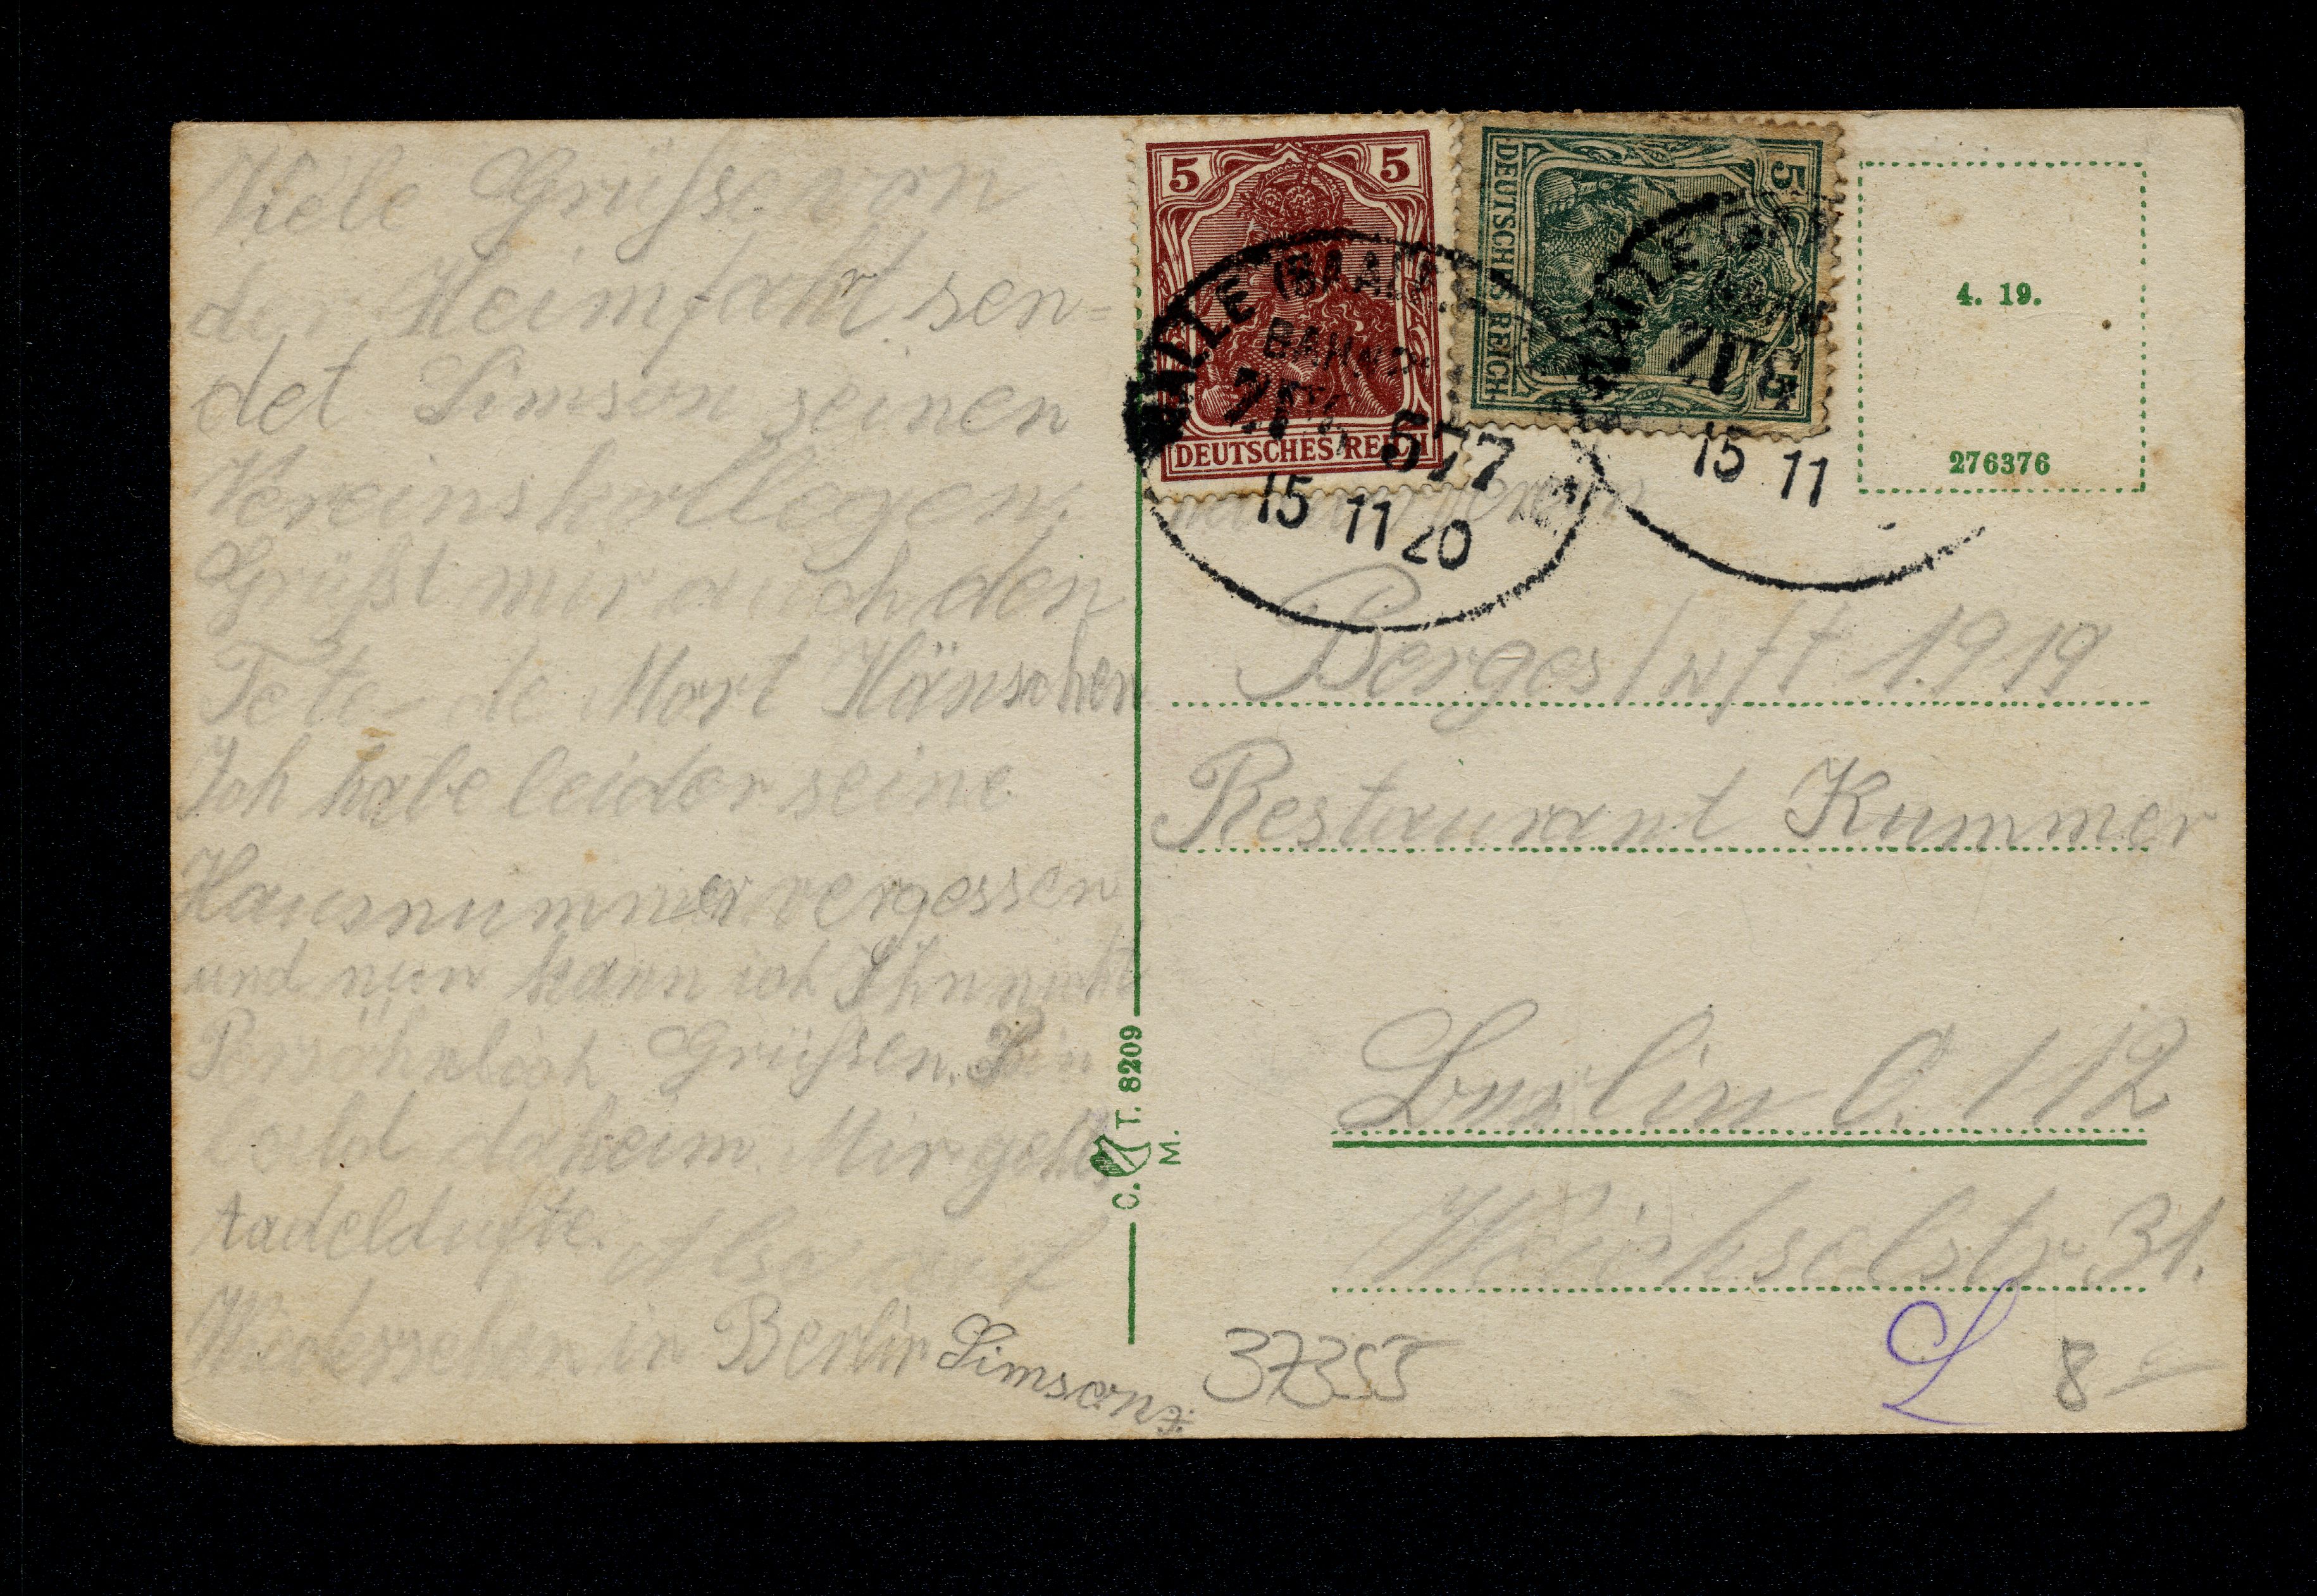 Viele Grüsse von
der Heimfahrt sen=
det Simson seinen
Vereinskollegen.
Grüßt mir auch den
Tete de Mort Hänschen
Ich habe leider seine
Hausnummer vergessen
und nun kann ich Ihn nicht
Persöhnlich Grüßen. Bin
bald daheim. Mir gehts
tadeldufte. Also auf
Wiedersehen in Berlin Simson
5 5
DEUTSCHES REICH
5 5
DEUTSCHES REICH
HALLE (SAALE)
BAHNH
677
15 11 20
HALLE
15 11
4. 19.
276376
1919
Restaurant Kummer
Berlin O. 112
Weichselstr. 31.
C. T. 8209
M.
37355
L
8